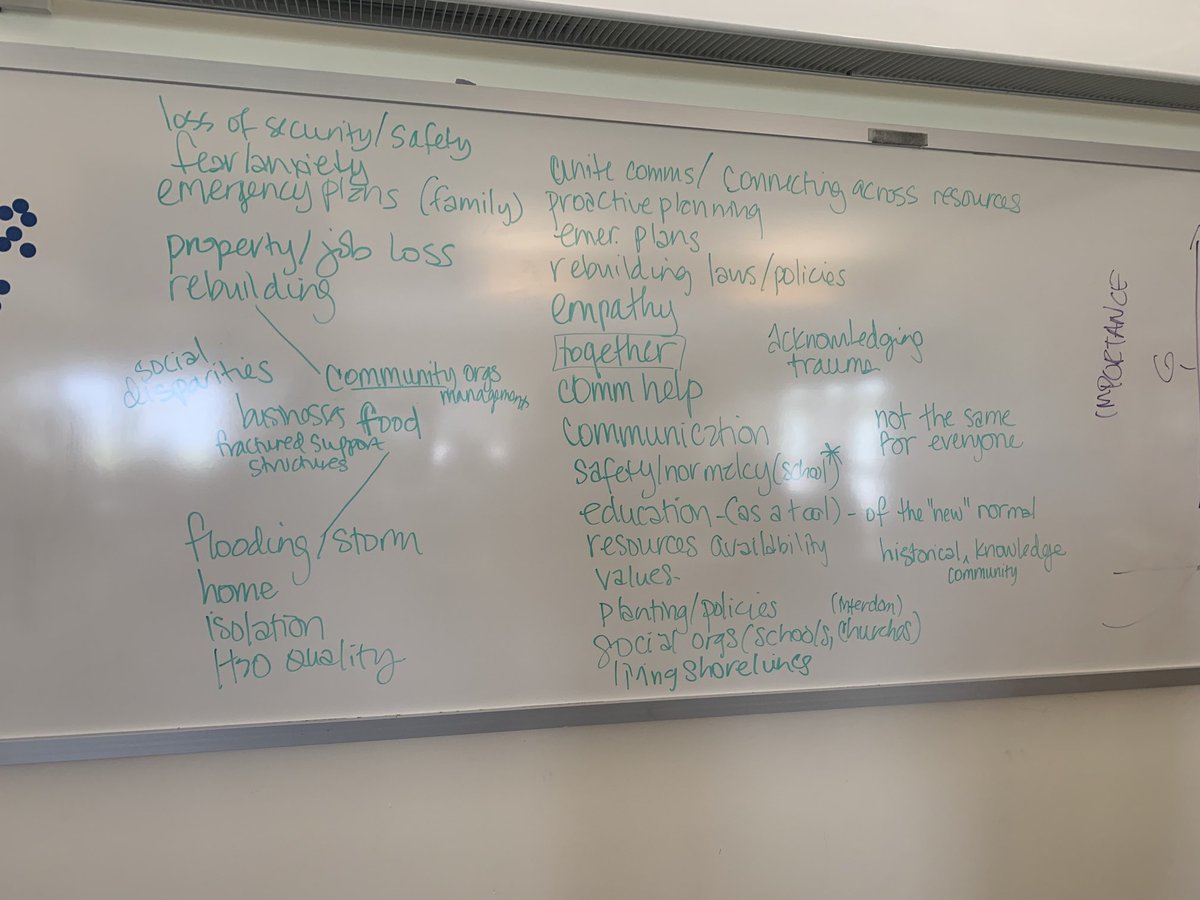 loss of security/safety
fear/anxiety
emergency plans (family)
property/job loss
rebuilding
social
disparities
community orgs
management
business food
fractured support
structures
flooding/storm
home
isolation
H2O quality
unite comms/ connecting across resources
proactive planning
emer. plans
rebuilding laws/policies
empathy
together
acknowledging
trauma
comm help
communication
not the same
for everyone
safety/normalcy (school*)
education-(as a tool) - of the "new" normal
resources availability
historical, knowledge
community
values-
planting/policies
social orgs (schools, churches)
living shorelines
IMPORTANCE